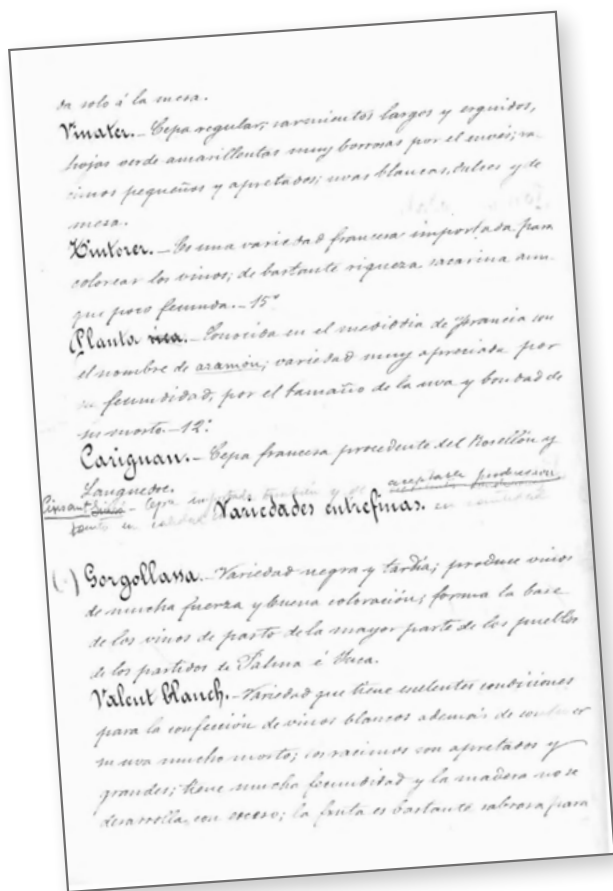 da solo á la mesa.
Vinater.- Cepa regular, sarmientos largos y erguidos,
hojas verde amarillentas muy borrosas por el envés; ra-
cimos pequeños y apretados; uvas blancas, dulces y de
mesa.
Tintorer.- Es una variedad francesa importada para
colorear los vinos; de bastante riqueza sacarina aun-
que poco fecunda.- 15°
Planta rica.- Conocida en el mediodia de Francia con
el nombre de aramón; variedad muy apreciada por
su fecundidad, por el tamaño de la uva y bondad de
su mosto.- 12°
Carignan.- Cepa francesa procedente del Rosellón y
Languedoc.
Cepa importada también y de producción
tanto en calidad en cantidad
Variedades entrefinas.
(-) Gorgollassa.- Variedad negra y tardía; produce vinos
de mucha fuerza y buena coloración; forma la base
de los vinos de pasto de la mayor parte de los pueblos
de los partidos de Palma é Inca.
Valent blanch.- Variedad que tiene exelentes condiciones
para la confección de vinos blancos además de contener
su uva mucho mosto; los racimos son apretados y
grandes; tiene mucha fecundidad y la madera no se
desarrolla con exceso; la fruta es bastante sabrosa para